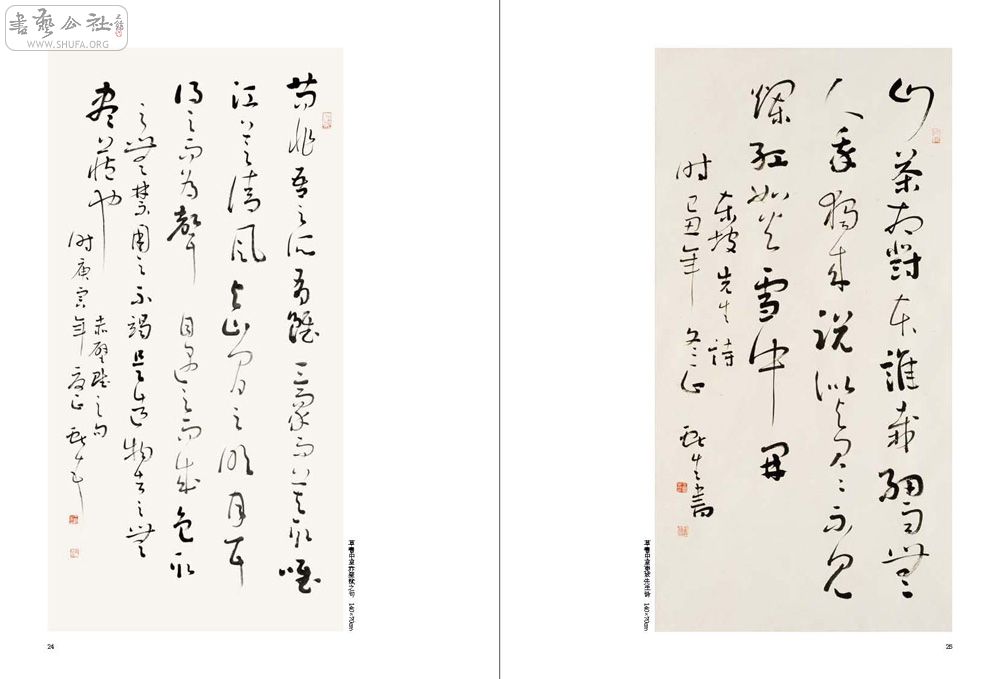 書藝公社
WWW.SHUFA.ORG
苟非吾之所有雖一毫而莫取唯
江上之清風與山間之明月耳
得之而為聲 目遇之而成色取
之無禁用之不竭是造物者之無
盡藏也
赤壁賦之句
時庚寅年夏正
草書中堂赤壁賦之句 140×70cm
24
山茶相對本誰栽細雨無
人我獨來說似與君〻不見
爛紅如火雪中開
東坡先生詩
時己丑年冬之正 書
草書中堂東坡先生詩 140×70cm
25